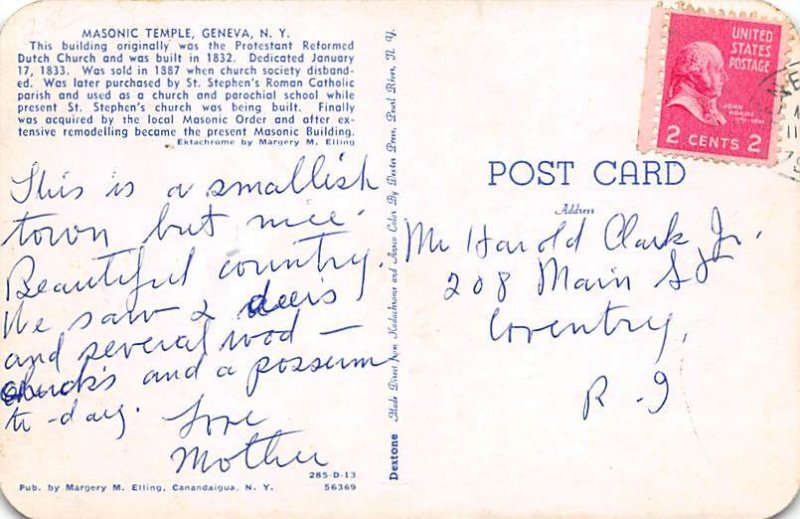 MASONIC TEMPLE, GENEVA, N. Y.
This building originally was the Protestant Reformed
Dutch Church and was built in 1832. Dedicated January
17, 1833. Was sold in 1887 when church society disband-
ed. Was later purchased by St. Stephen's Roman Catholic
parish and used as a church and parochial school while
present St. Stephen's church was being built. Finally
was acquired by the local Masonic Order and after ex-
tensive remodelling became the present Masonic Building.
Ektachrome by Margery M. Elling
This is a smallish
town but nice.
Beautiful country.
We saw 2 deers
and several wood -
chucks and a possum
to-day.
Love
Mother
285-D-13
Pub. by Margery M. Elling, Canandaigua, N. Y. 56369
Dextone Made Direct from Kodachrome and Ansco Color By Dexter Press, Pearl River, N. Y.
UNITED
STATES
POSTAGE
JOHN
ADAMS
2 CENTS 2
POST CARD
Address
Mr Harold Clark Jr.
208 Main St
Coventry,
R-I